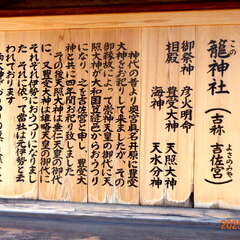 この
籠神社
(古称 吉佐宮)
よさのみや
御祭神 彦火明命
相殿 豊受大神 天照大神
海神 天水分神
神代の昔より奥宮眞名井原に豊受
大神をお祀りして来ましたが、その
御縁故に依って崇神天皇の御代に天
照大神が大和国笠縫邑からおうつり
になり、之を吉佐宮と申し、豊受大
神と共に四年間お祀り致しました。
その後天照大神は垂仁天皇の御代
に、又豊受大神は雄略天皇の御代に
それぞれ伊勢におうつりになりまし
た。それに依って當社は元伊勢と云
われております